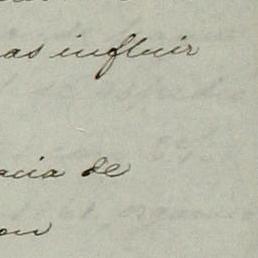 as influir
acia de
on